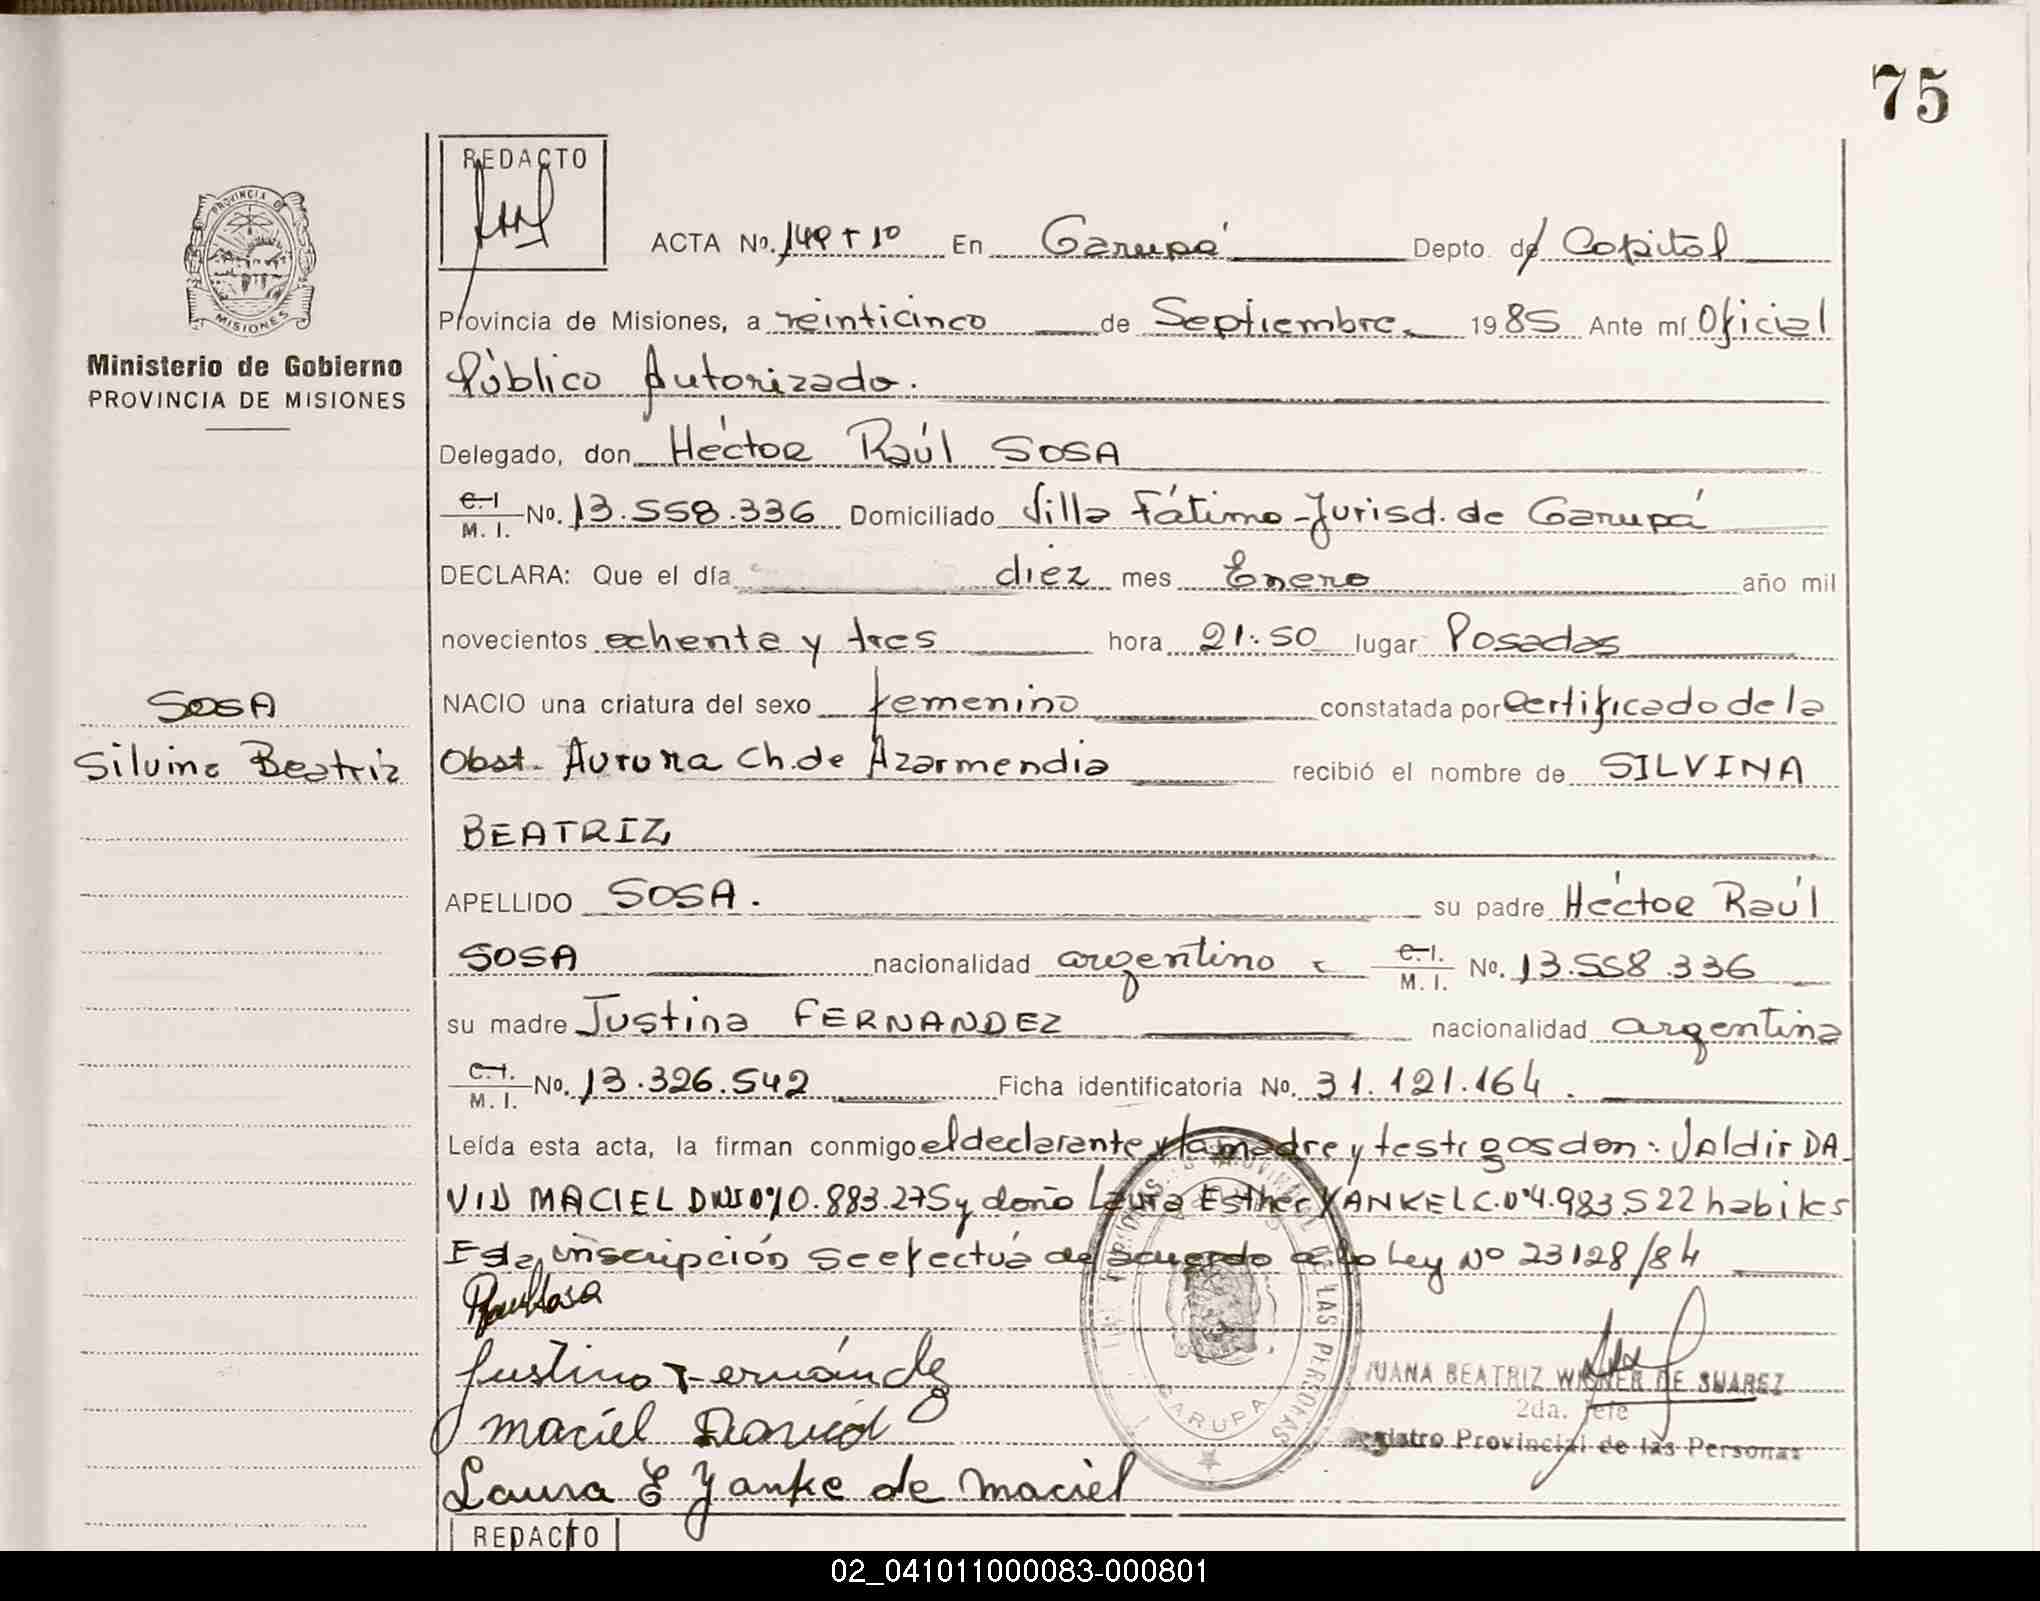 75
REDACTO
ACTA No. 149 T 1º En Garupá Depto. de Capital
Provincia de Misiones, a veinticinco de Septiembre 1985 Ante mí Oficial
Público Autorizado.
Delegado, don Héctor Raúl SOSA
C.I. M. I. No. 13.558.336 Domiciliado Villa Fátima - Jurisd. de Garupá
DECLARA: Que el día diez mes Enero año mil
novecientos ochenta y tres hora 21:50 lugar Posadas
NACIO una criatura del sexo femenino constatada por certificado de la
Obst. Aurora Ch. de Azarmendia recibió el nombre de SILVINA
BEATRIZ
APELLIDO SOSA. su padre Héctor Raúl
SOSA nacionalidad argentino C.I. M. I. No. 13.558.336
su madre Justina FERNANDEZ nacionalidad argentina
C.I. M. I. No. 13.326.542 Ficha identificatoria No. 31.121.164.
Leída esta acta, la firman conmigo el declarante y la madre y testigos don: Valdir DA
VID MACIEL DNI Nº 10.883.275 y doña Laura Esther YANKE L.C. Nº 4.983.522 habiles
Esta inscripción se efectúa de acuerdo a la Ley Nº 23128/84
Raul Sosa
Justina Fernández
Maciel David
Laura E Yanke de Maciel
PROVINCIAL DE LAS PERSONAS
GARUPA
JUANA BEATRIZ DE SUAREZ
2da. Jefe
Registro Provincial de las Personas
REDACTO
PROVINCIA DE
MISIONES
Ministerio de Gobierno
PROVINCIA DE MISIONES
SOSA
Silvina Beatriz
02_041011000083-000801